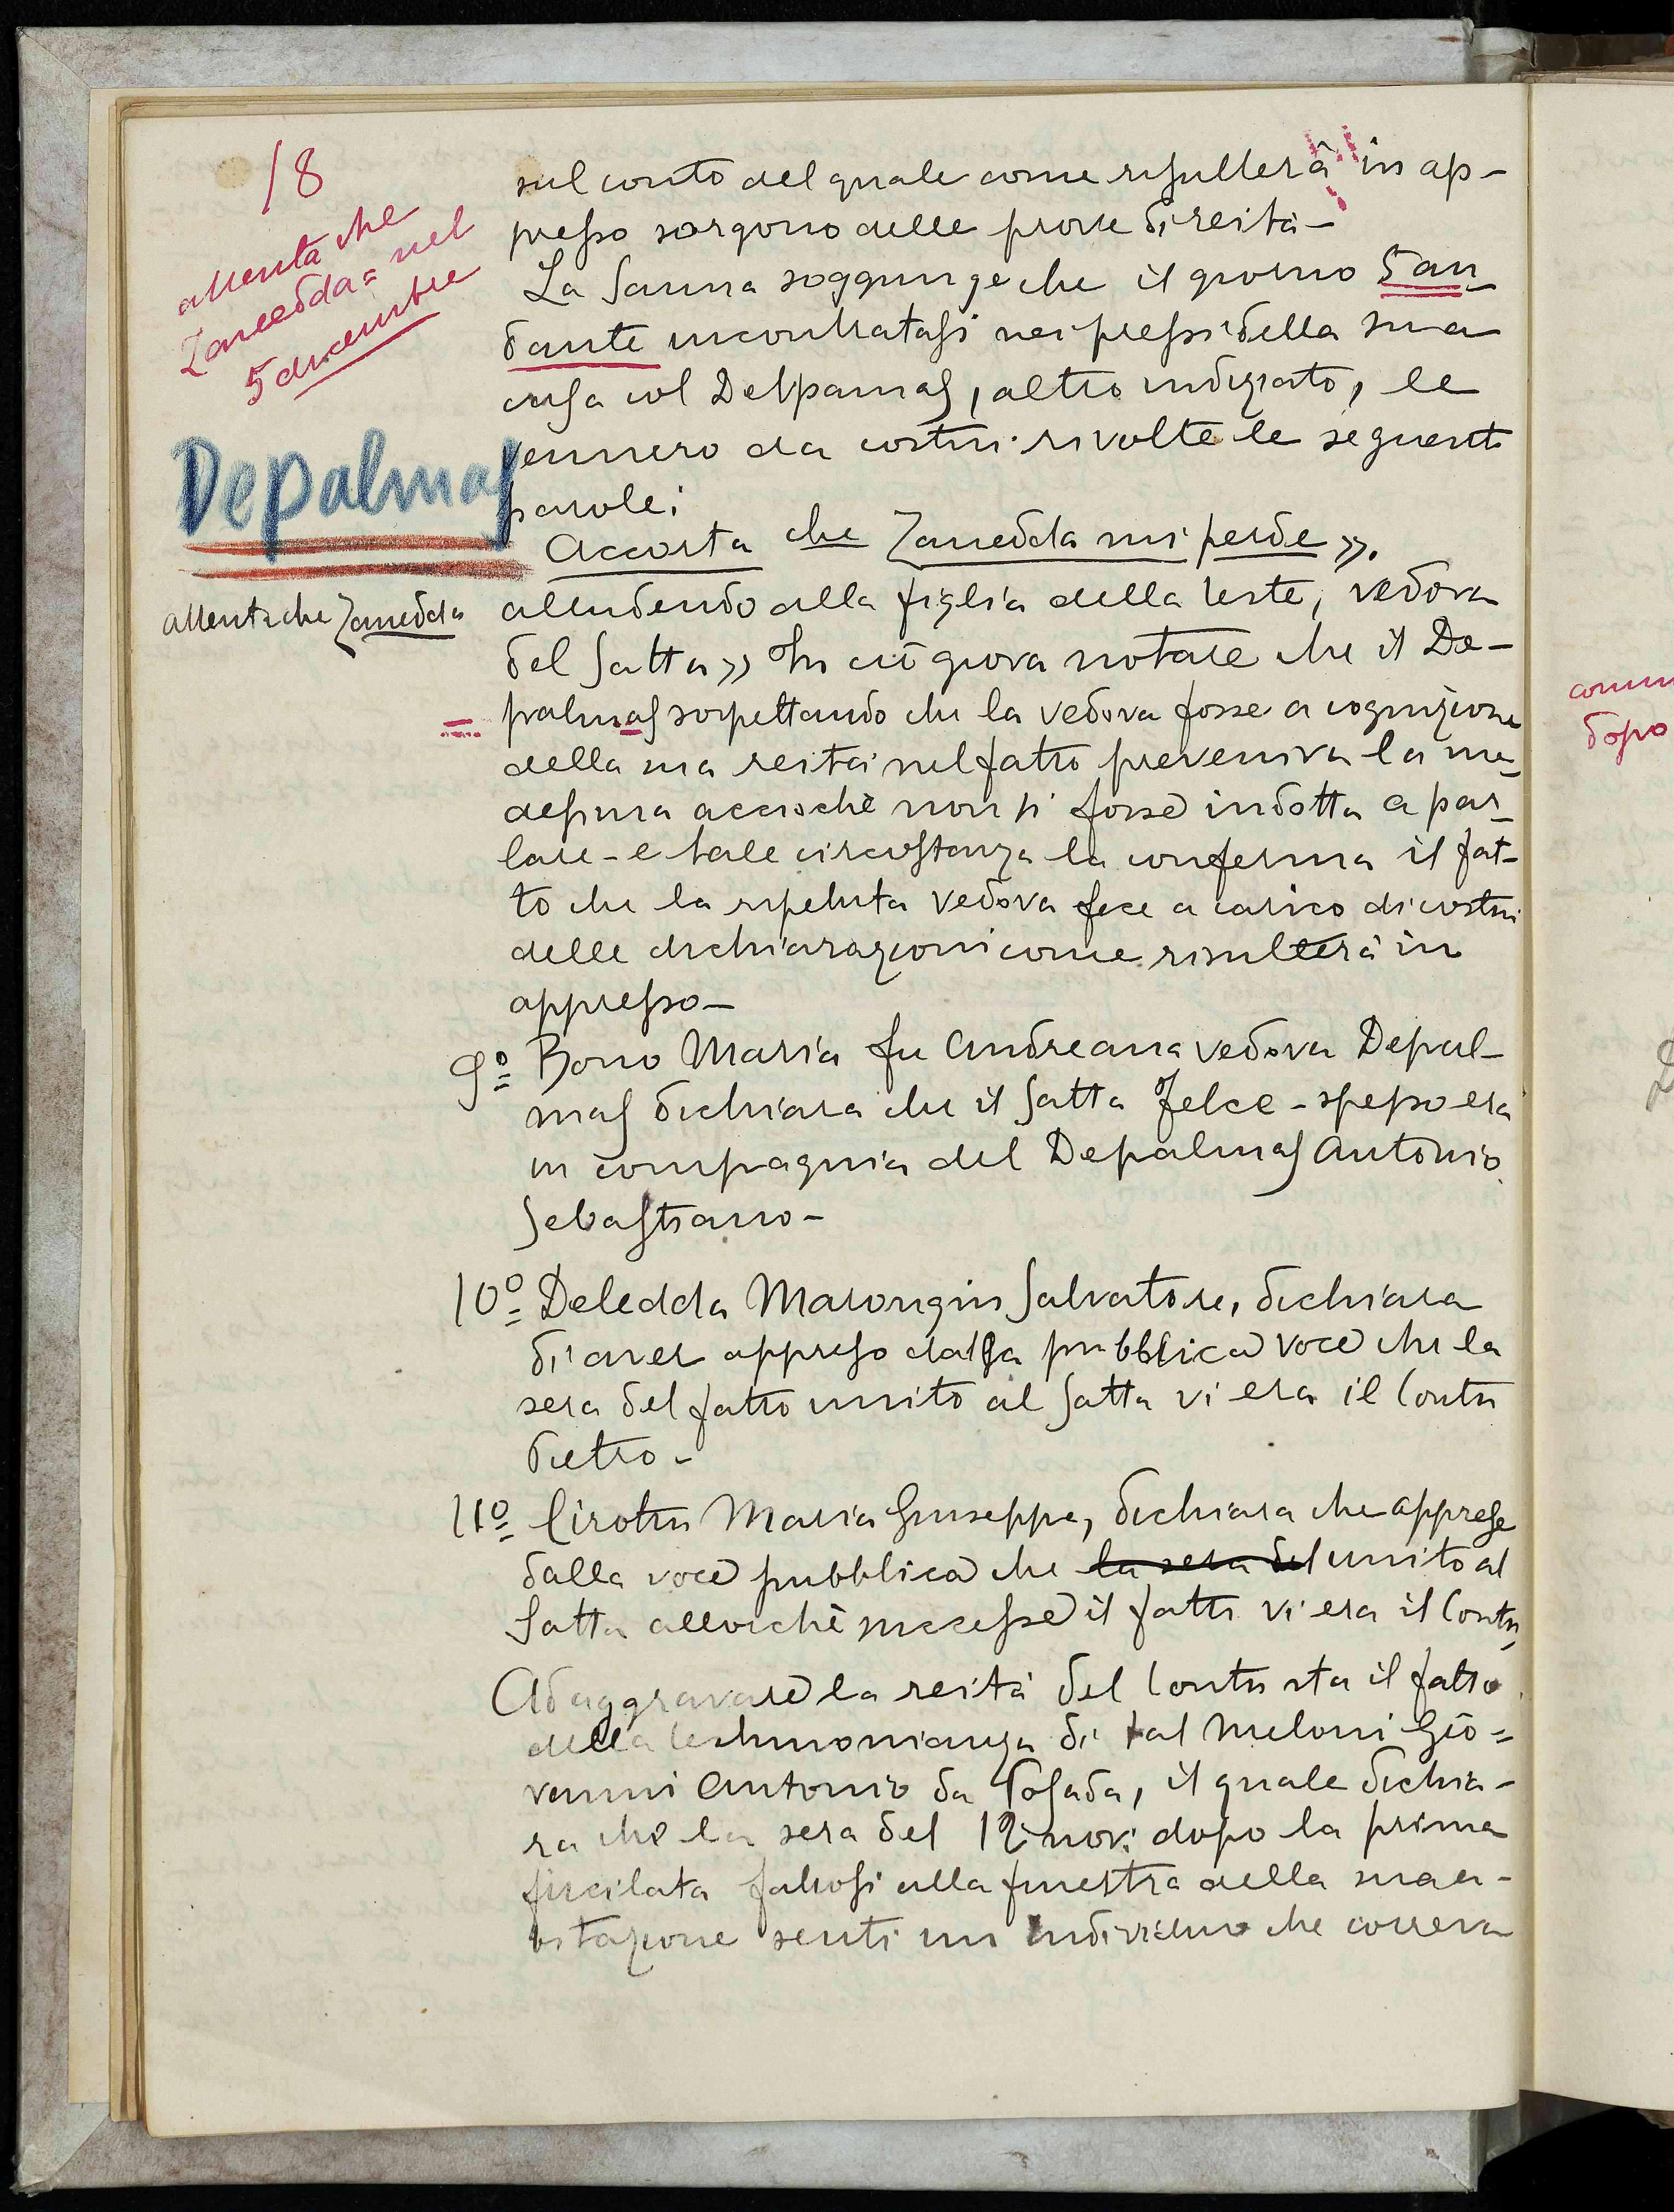 18
attenta che
Zaneddda= nel
5 dicembre
sul conto del quale come risulterà in ap-
presso sorgono delle prove di reità -
La Sanna soggiunge che il giorno 5 an-
dante incontratasi nei pressi della sua
casa col Delpamas, altro indiziato, le
vennero da costui rivolte le seguenti
parole:
Depalmas
Accorta che Zanedda mi perde ».
attenta che Zanedda
alludendo alla figlia della teste, vedova
del Satta » In ciò giova notare che il De-
palmas sospettando che la vedova fosse a cognizione
della sua reità nel fatto preveniva la me-
desima acciochè non si fosse indotta a par-
lare - e tale circostanza la conferma il fat-
to che la ripetuta vedova fece a carico di costui
delle dichiarazioni come risulterà in
appresso -
9º= Bono Maria fu Andreana vedova Depal-
mas dichiara che il Satta Felce - spesso era
in compagnia del Depalmas Antonio
Sebastiano -
10º= Deledda Marongiu Salvatore, dichiara
di aver appreso dalla pubblica voce che la
sera del fatto unito al Satta vi era il Contu
Pietro -
11º= Cirotu Maria Giuseppa, dichiara che apprese
dalla voce pubblica che la sera del unito al
Satta allorchè successe il fatto vi era il Contu
Ad aggravare la reità del Contu sta il fatto
della testimonianza di tal Meloni Gio=
vanni Antonio da Posada, il quale dichia-
ra che la sera del 12 nov: dopo la prima
fucilata fattosi alla finestra della sua a-
bitazione sentì un individuo che correva
dopo